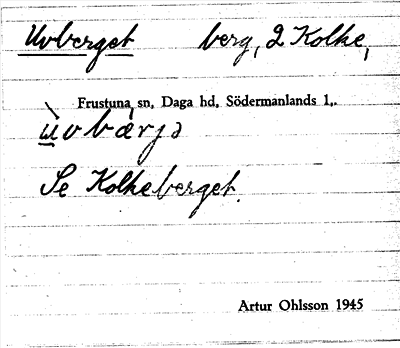 Uvberget berg, 2 Kolke,
Frustuna sn, Daga hd, Södermanlands l,.
ù̱vbæ̀rjə
Se Kolkeberget.
Artur Ohlsson 1945